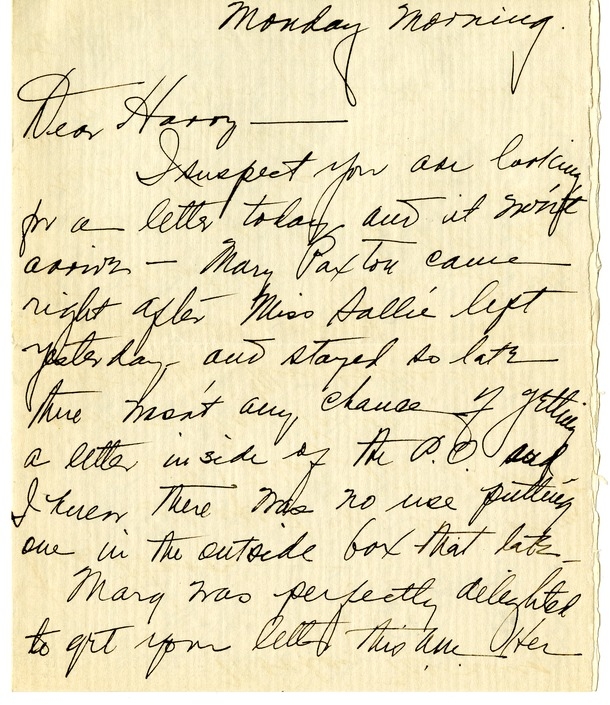 Monday Morning.
Dear Harry —
I suspect you are looking
for a letter today and it won't
arrive — Mary Paxton came
right after Miss Sallie left
yesterday and stayed so late
there wasn't any chance of getting
a letter inside of the P.O and
I knew there was no use putting
one in the outside box that late.
Mary was perfectly delighted
to get your letter this a.m. Her